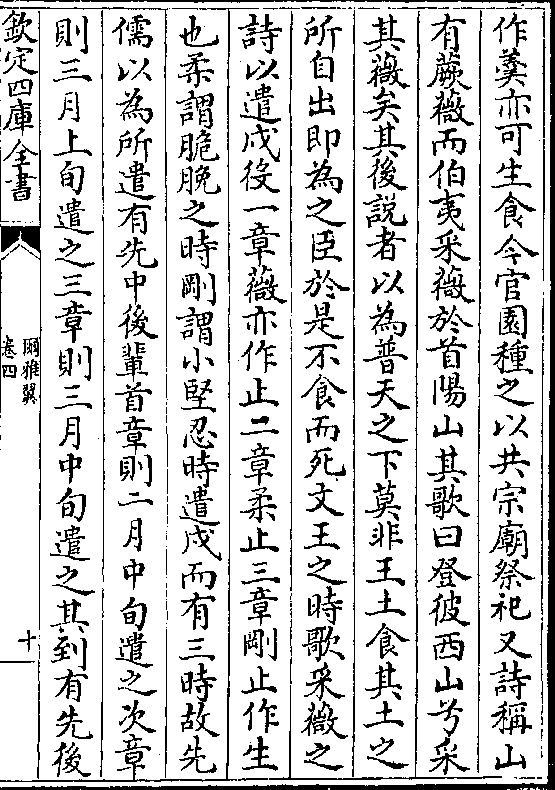 作羹亦可生食今官園種之以共宗廟祭祀又詩稱山
有蕨薇而伯夷采薇於首陽山其歌曰登彼西山兮采
其薇矣其後説者以為普天之下莫非王土食其土之
所自出即為之臣於是不食而死文王之時歌采薇之
詩以遣戍役一章薇亦作止二章柔止三章剛止作生
也柔謂脆脕之時剛謂小堅忍時遣戍而有三時故先
儒以為所遣有先中後輩首章則二月中旬遣之次章
則三月上旬遣之三章則三月中旬遣之其到有先後
欽定四庫全書
爾雅翼
卷四
十